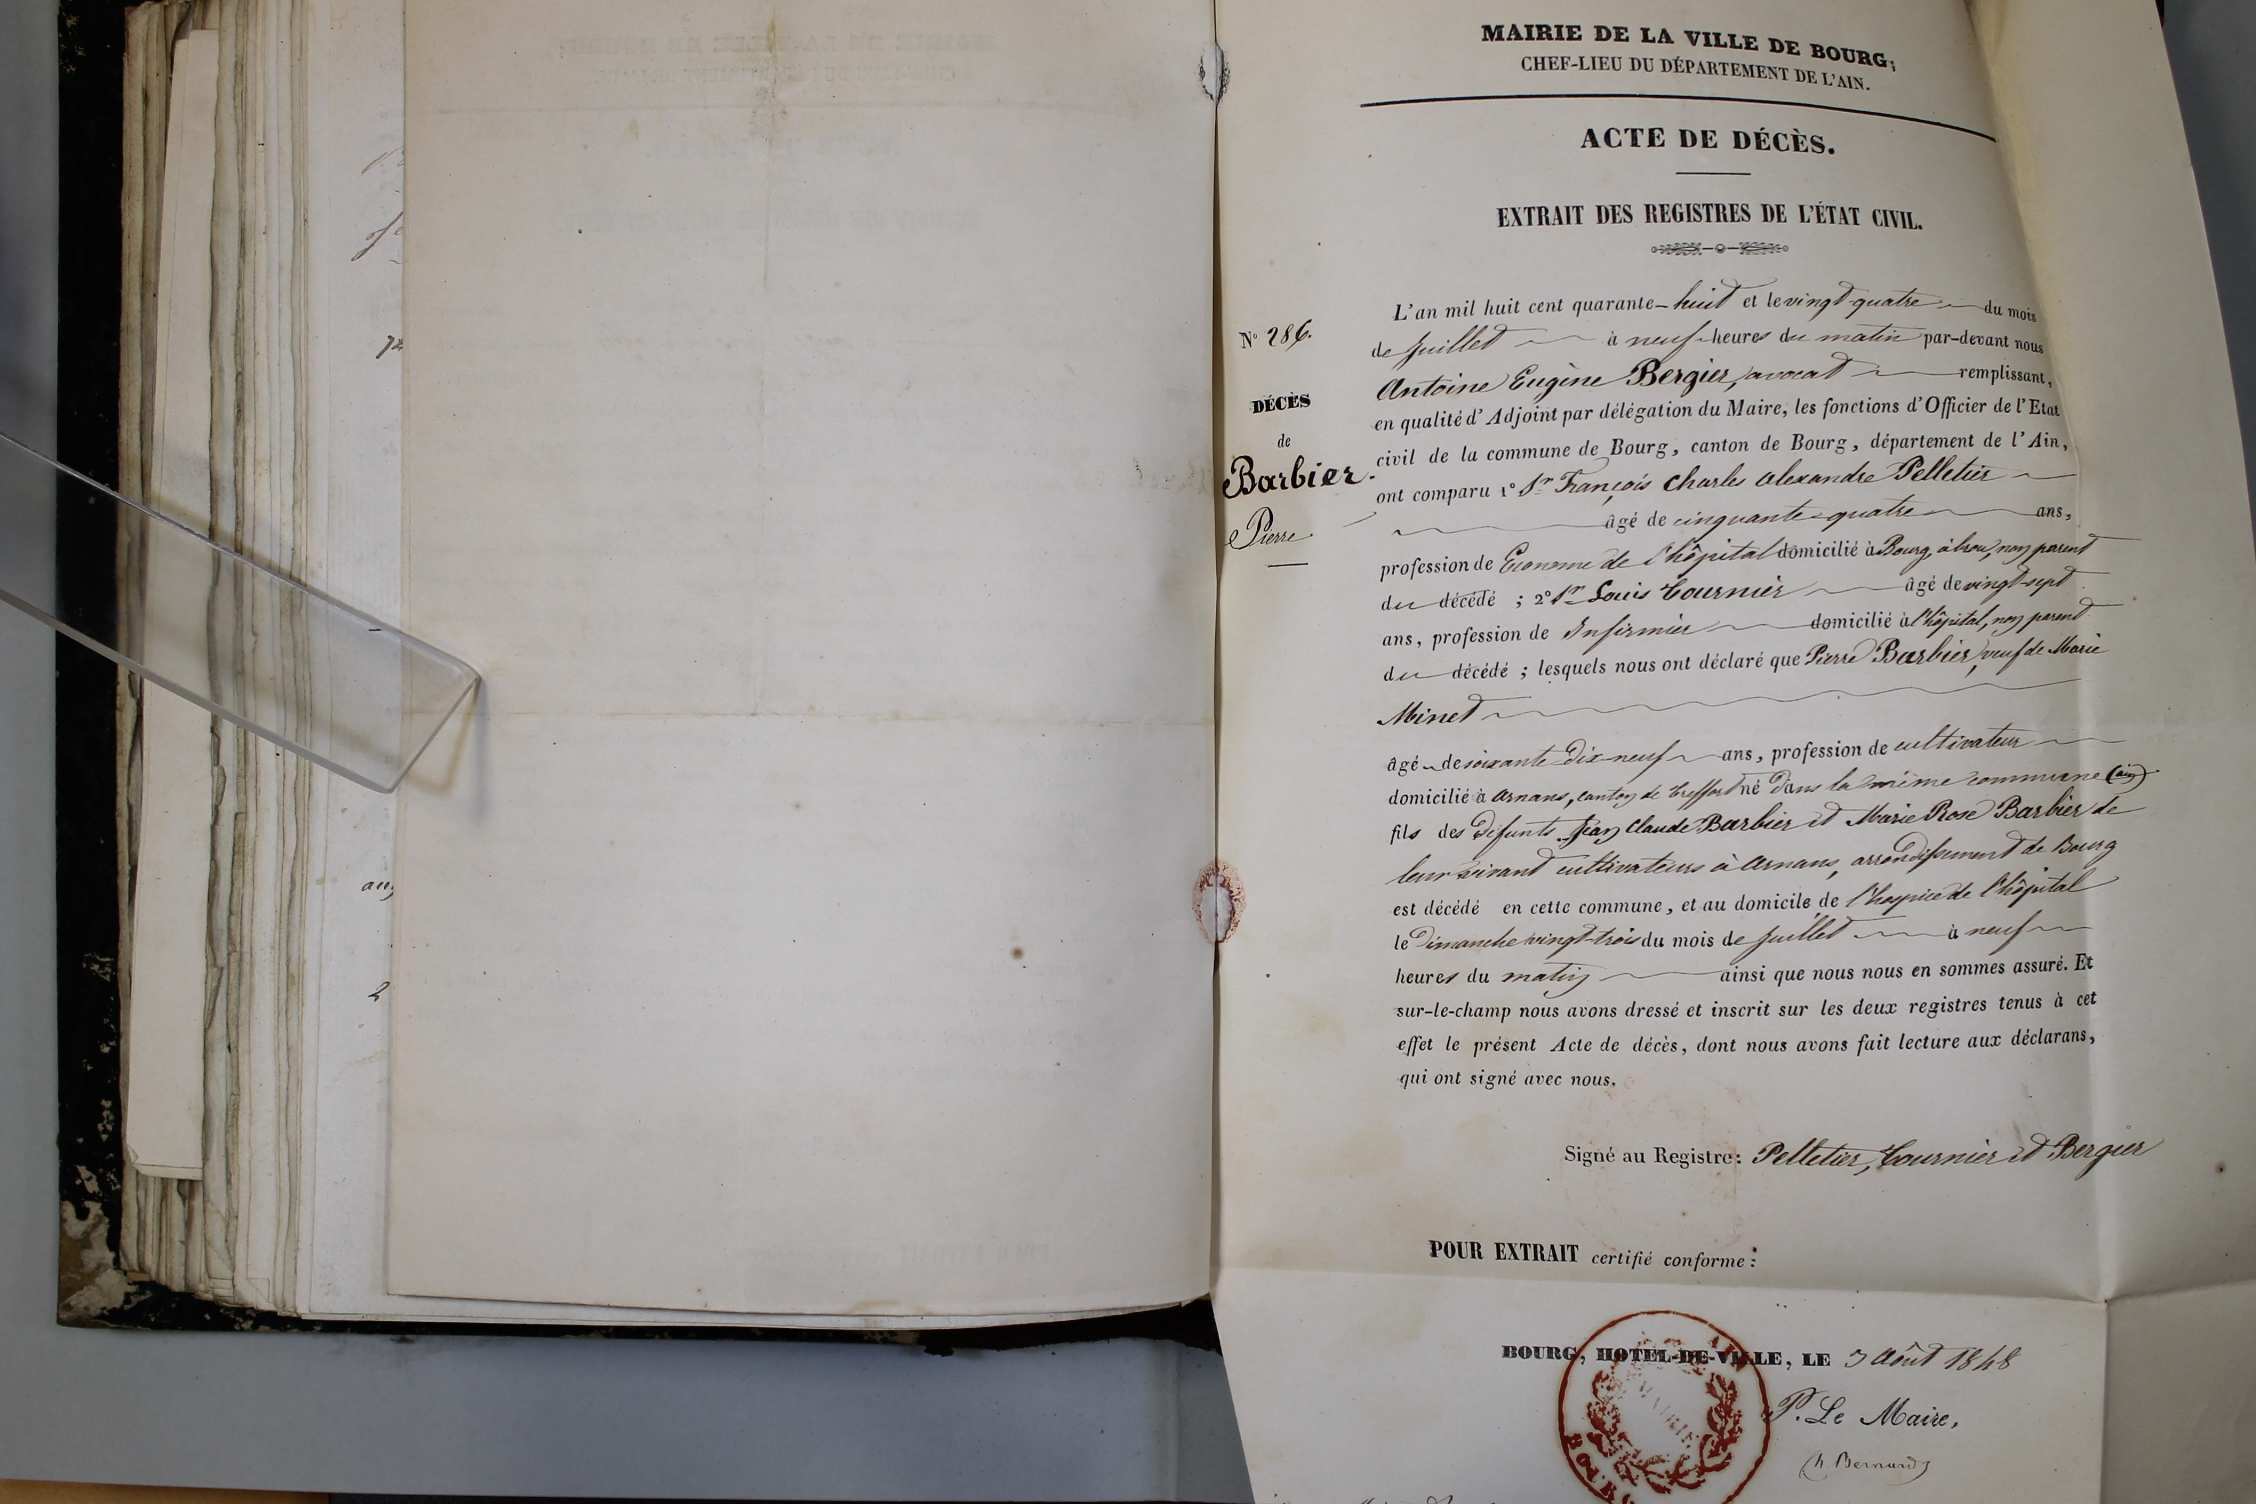 MAIRIE DE LA VILLE DE BOURG,
CHEF-LIEU DU DÉPARTEMENT DE L'AIN.
ACTE DE DÉCÈS.
EXTRAIT DES REGISTRES DE L'ÉTAT CIVIL.
N° 286.
DÉCÈS
de
Barbier
Pierre
L'an mil huit cent quarante-huit et le vingt-quatre du mois
de juillet à neuf heures du matin par-devant nous
Antoine Eugène Bergier, avocat remplissant,
en qualité d'Adjoint par délégation du Maire, les fonctions d'Officier de l'Etat
civil de la commune de Bourg, canton de Bourg, département de l'Ain,
ont comparu 1° Sr François Charles Alexandre Pelletier
âgé de cinquante-quatre ans,
profession de Econome de l'hôpital domicilié à Bourg, non parent
du décédé ; 2° Sr Louis Tournier âgé de vingt-sept
ans, profession de Infirmier domicilié à l'hôpital, non parent
du décédé ; lesquels nous ont déclaré que Pierre Barbier, veuf de Marie
Minet
âgé de soixante-dix-neuf ans, profession de cultivateur
domicilié à Arnans, canton de Treffort né dans la même commune (ain)
fils des défunts Jean Claude Barbier et Marie Rose Barbier de
leur vivant cultivateurs à Arnans, arrondissement de Bourg
est décédé en cette commune, et au domicile de l'hospice de l'hôpital
le dimanche vingt-trois du mois de juillet à neuf
heures du matin ainsi que nous nous en sommes assuré. Et
sur-le-champ nous avons dressé et inscrit sur les deux registres tenus à cet
effet le présent Acte de décès, dont nous avons fait lecture aux déclarans,
qui ont signé avec nous.
Signé au Registre: Pelletier, Tournier et Bergier
POUR EXTRAIT certifié conforme :
BOURG, HOTEL-DE-VILLE, LE 3 Aôut 1848
P. Le Maire,
Bernard
MAIRIE
AIN
BOURG